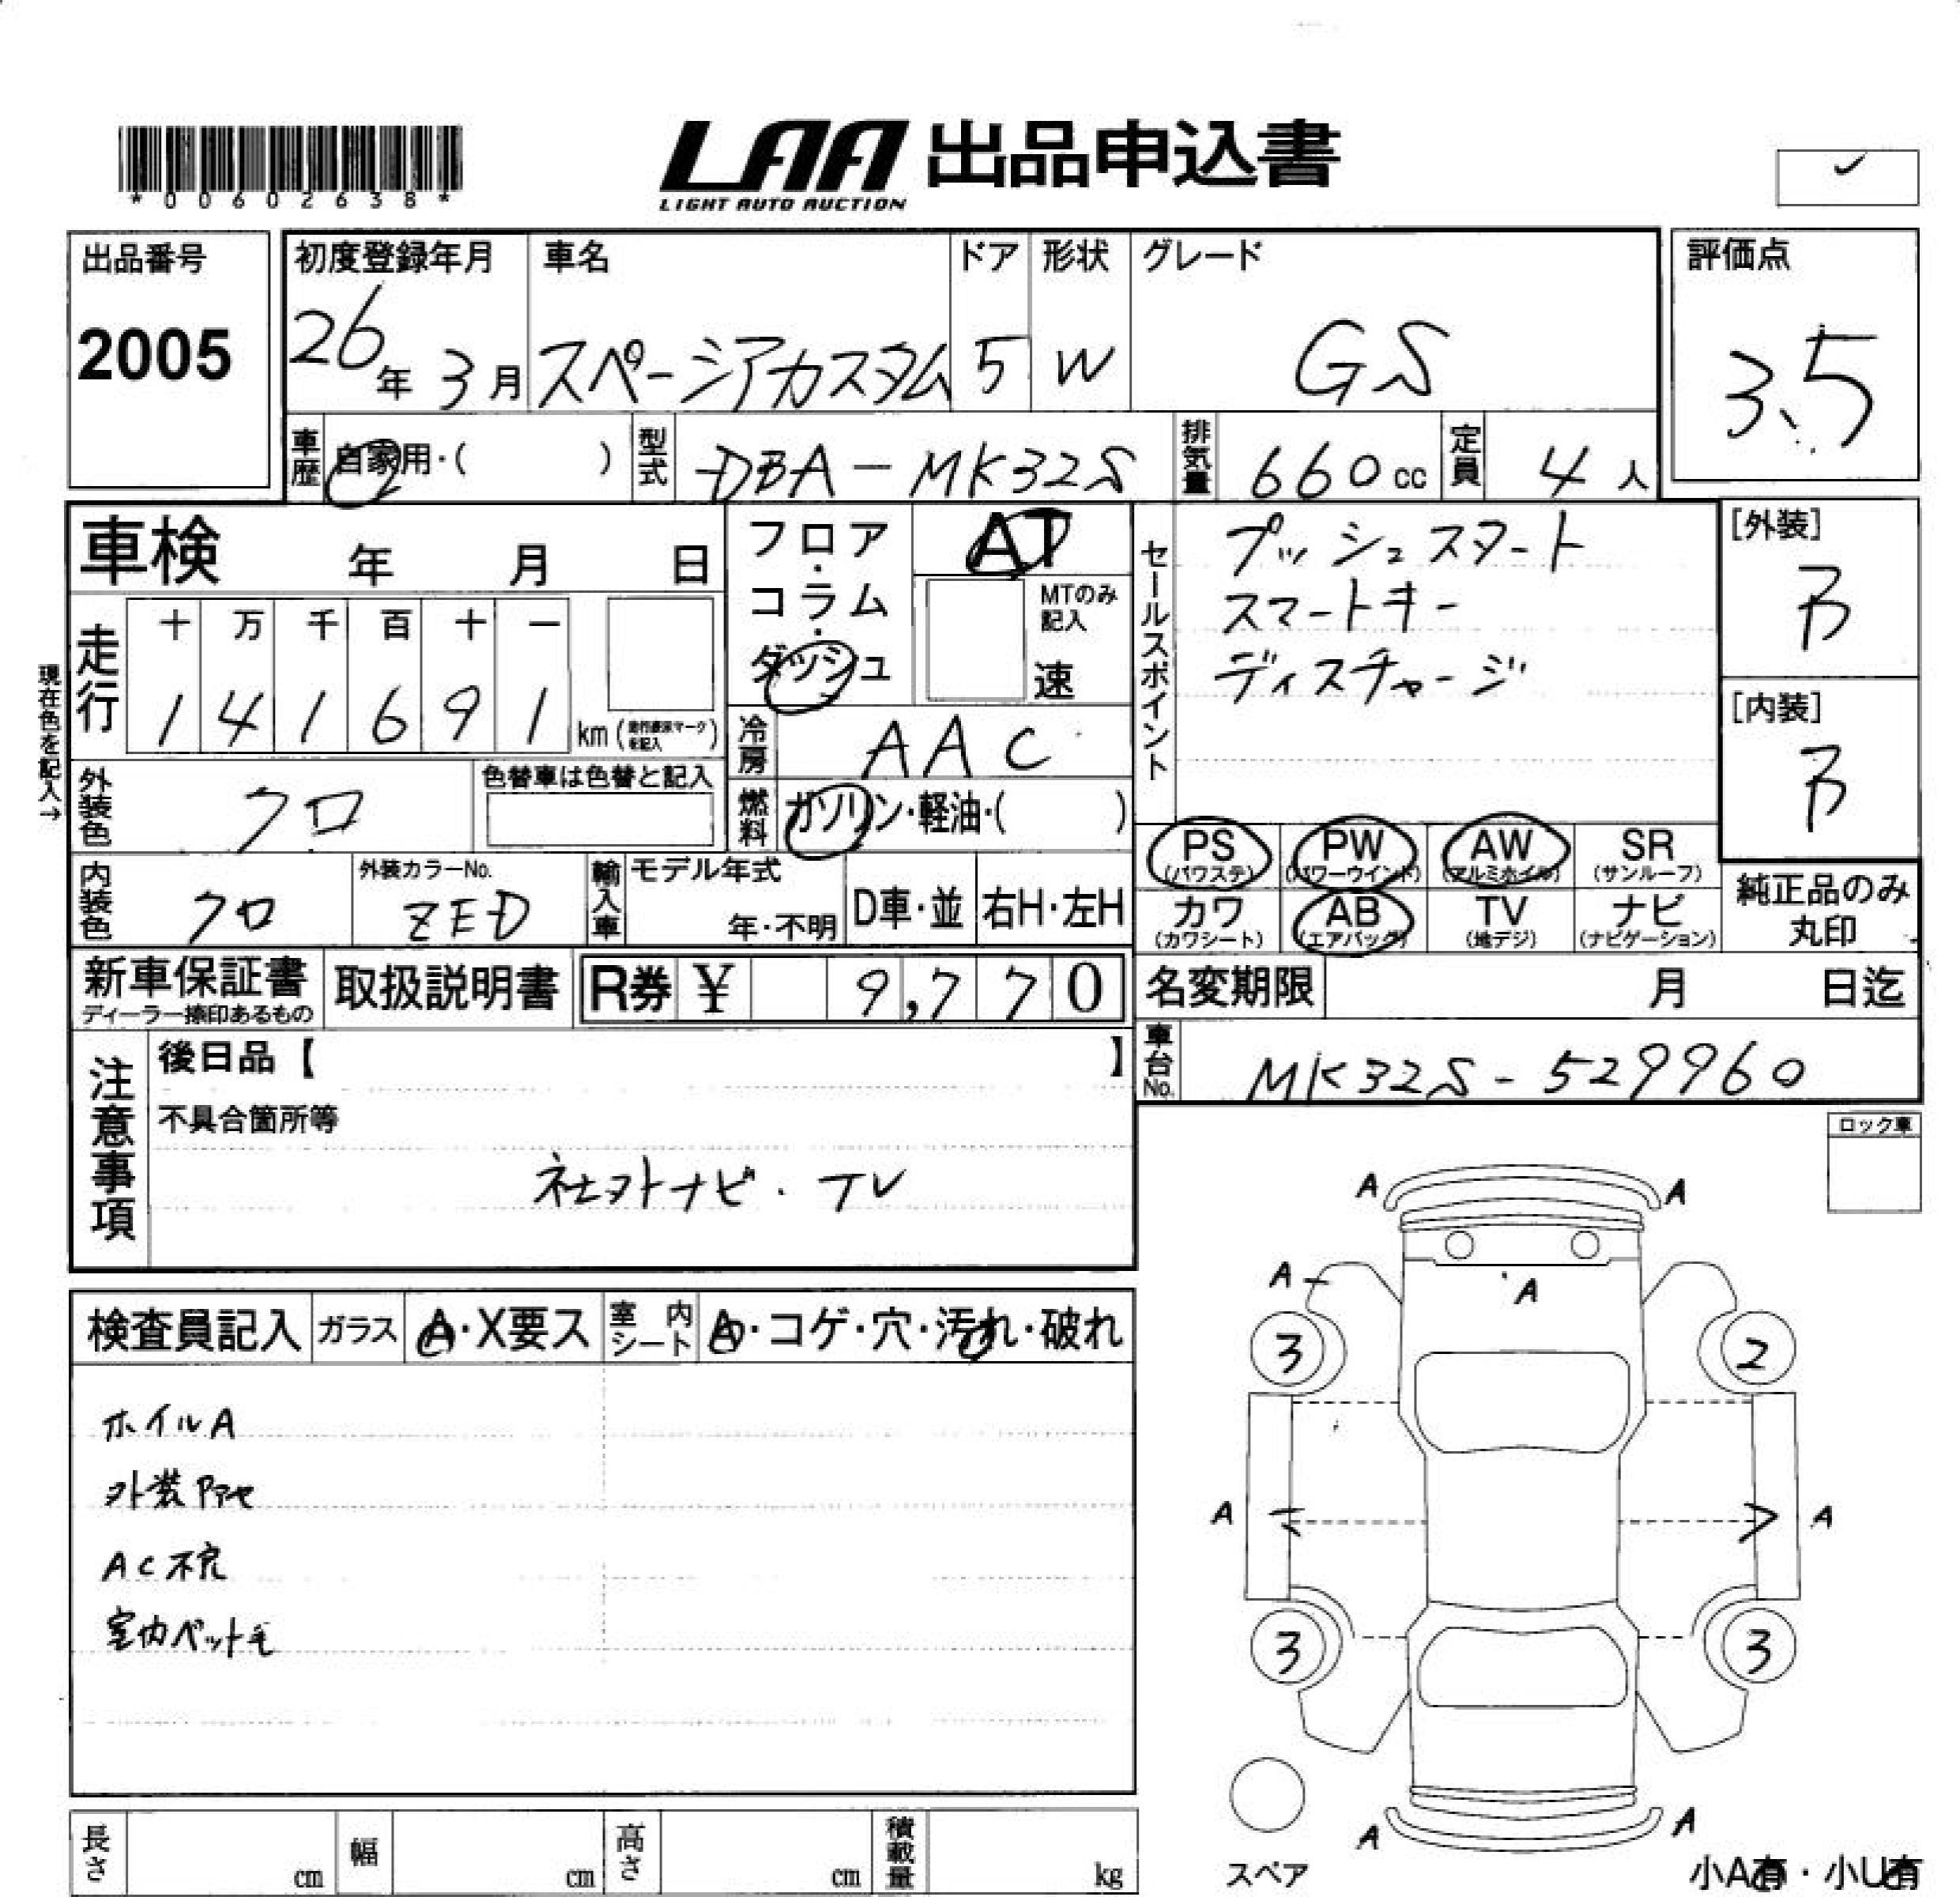 *00602638*
LAA 出品申込書
LIGHT AUTO AUCTION
出品番号
2005
初度登録年月
26年 3月
車名
スペーシアカスタム
ドア
5
形状
W
グレード
GS
評価点
3.5
車歴
自家用・( )
型式
DBA-MK32S
排気量
660cc
定員
4人
車検 年 月 日
フロア・コラム・ダッシュ
AT
MTのみ記入
速
セールスポイント
プッシュスタート
スマートキー
ディスチャージ
[外装]
B
[内装]
B
現在色を記入→
走行
十 万 千 百 十 一
1 4 1 6 9 1 km
冷房
AAC
外装色
クロ
色替車は色替と記入
燃料
ガソリン・軽油・( )
PS
(パワステ)
PW
(パワーウインド)
AW
(アルミホイル)
SR
(サンルーフ)
内装色
クロ
外装カラーNo.
ZED
輸入車
モデル年式
年・不明
D車・並
右H・左H
カワ
(カワシート)
AB
(エアバッグ)
TV
(地デジ)
ナビ
(ナビゲーション)
純正品のみ
丸印
新車保証書
ディーラー捺印あるもの
取扱説明書
R券 ¥ 9,770
名変期限 月 日迄
車台No.
MK32S-529960
注意事項
後日品【 】
不具合箇所等
社外ナビ・TV
ロック車
検査員記入
ガラス
A・X要ス
室内シート
A・コゲ・穴・汚れ・破れ
ホイルA
外装
AC不良
室内ペット毛
A A
A
A
3 2
A A
3 3
A A
スペア
小A有・小U有
長さ cm
幅 cm
高さ cm
積載量 kg